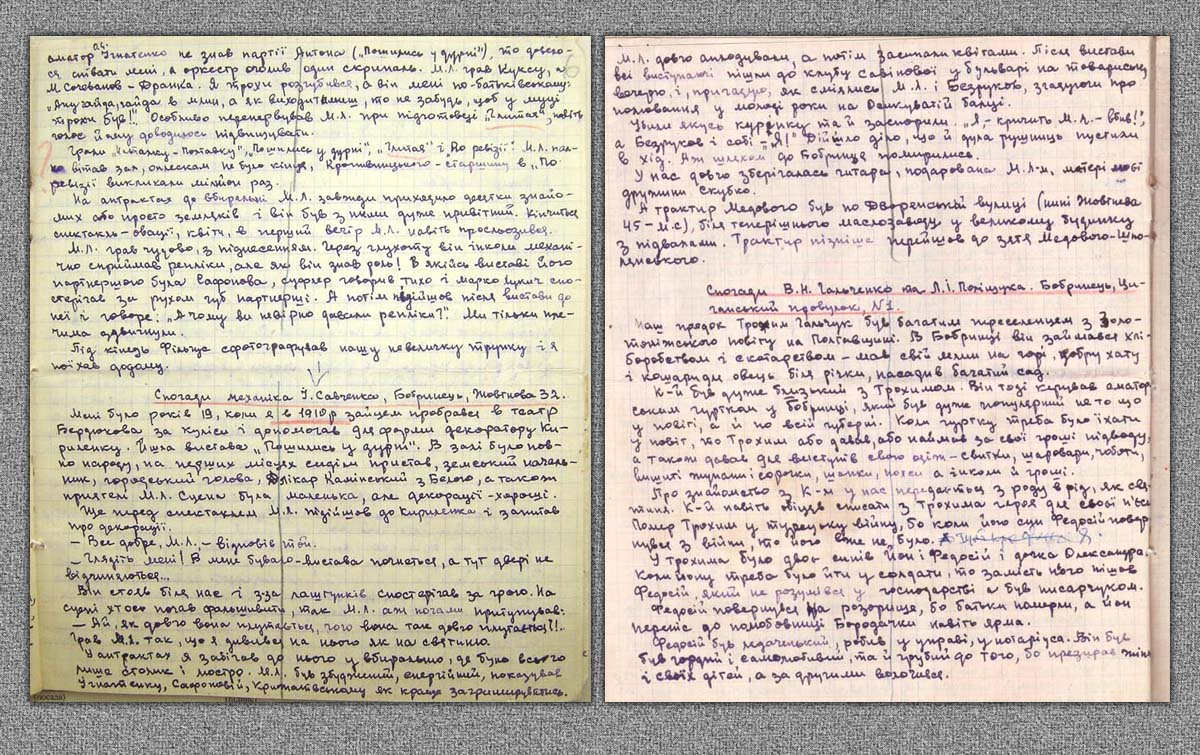 аматор Ігнатенко не знав партії Антона („Пошились у дурні"), то довело-
ся співати мені, а оркестр очолив один скрипаль. М.Л. грав Куксу, а
М. Сочеванов - Франка. Я трохи розгубився, а він мені по-батьківському:
Особливо перенервував М.Л. при підготовці „Глитая", навіть
голос йому доводилось підвищувати.
Грали „Наталку - Полтавку", „Пошились у дурні", „Глитая" і По ревізії. М.Л.
вітав зал, оплескам не було кінця, Кропивницького - старшину в „По
ревізії викликали мільйон раз.
На антрактах до вбиральні М.Л. завжди приходило десятки знайо-
мих або просто земляків і він був з ними дуже привітний. Кінчиться
спектакль - овації, квіти, в перший вечір М.Л. навіть прослезився.
М.Л. грав чудово, з піднесенням. Через глухоту він інколи механі-
чно сприймав репліки, але як він знав роль! В якійсь виставі його
партнершою була Сафонова, суфлер говорив тихо і Марко Лукич спо-
стерігав за рухом губ партнерші. А потім підійшов після вистави до
неї і говоре: „А чому ви невірно давали репліки?". Ми тільки пле-
чима здвигнули.
Під кінець Фільчус сфотографував нашу невеличку трупку і я
поїхав додому.
Спогади механіка І. Савченко, Бобринець, Жовтнева 32.
Мені було років 19, коли я в 1910 р зайцем пробрався в театр
Бердюкова за куліси і допомагав для форми декоратору Ки-
риленку. Йшла вистава „Пошились у дурні". В залі було пов-
но народу, на перших місцях сиділи пристав, земський началь-
ник, городський голова, лікар Камінський з Белою, а також
приятелі М.Л. Сцена була маленька, але декорації - хороші.
Ще перед спектаклем М.Л. підійшов до Кириленка і запитав
про декорації.
- Все добре, М.Л., - відповів той.
- Глядіть мені! В мене бувало - вистава почнеться, а тут двері не
відчиняються...
Він стояв біля нас і з-за лаштунків спостерігав за грою. На
сцені хтось почав фальшивити, так М.Л. аж ногами притупцював:
- Ай, як довго вона плутається, чого вона так довго плутається?!..
Грав М.Л. так, що я дивився на нього як на святиню.
У антрактах я забігав до нього у вбиральню, де було всього
лише столик і люстро. М.Л. був збуджений, енергійний, показував
Ігнатенку, Сафоновій, як краще загримируватись.
(посада)
М.Л. довго аплодували, а потім засипали квітами. Після вистави
всі виступаючі пішли до клубу Савінової у бульварі на товариську
вечерю, і, пригадую, як сміялись М.Л. і Безруков, згадуючи про
полювання у молоді роки на балці.
Убили якусь куріпку та й заспорили. „Я, - кричить М.Л. - вбив!",
а Безруков і собі - „Я!" Дійшло діло, що й дула рушниць пустили
в хід. Аж шляхом до Бобринця помирились.
У нас довго зберігалась гітара, подарована М.Л-м, матері моєї
дружини Скубко.
А трактир Медового був по Дворянській вулиці (нині Жовтнева
45 - М.С), біля теперішнього маслозаводу у великому будинку
з підвалами. Трактир пізніше перейшов до зятя Медового - Шпо-
лянського.
Спогади В.Н. Гальченко та Л.І. Поліщука. Бобринець, Ци-
ганський провулок, №1.
Наш предок Трохим Гальчук був багатим переселенцем з Золо-
тоніжського повіту на Полтавщині. В Бобринці він займався хлі-
боробством і скотарством - мав свій млин на горі, добру хату
і кошари для овець біля річки, насадив багатий сад.
К-й був дуже близький з Трохимом. Він тоді керував аматор-
ським гуртком у Бобринці, який був дуже популярний не то що
у повіті, а й по всій губерні. Коли гуртку треба було їхати
у повіт, то Трохим або давав, або наймав за свої гроші підводу,
а також давав для виступів свою одіж - свитки, шаровари, чоботи,
вишиті жупани і сорочки, шапки, пояси а інколи й гроші.
Про знайомство з К-м у нас передається з роду в рід, як свя-
тиня. К-й навіть обіцяв списати з Трохима героя для своєї п'єси
Помер Трохим у турецьку війну, бо коли його син Федосій повер-
нувся з війни, то його вже не було.
У Трохима було двоє синів Йон і Федосій і дочка Олександра.
Коли Йону треба було йти у солдати, то замість нього пішов
Федосій, який не розумівся у господарстві а був писарчуком.
Федосій повернувся на розорище, бо батьки померли, а Йон
переніс до полюбовниці Бородачки навіть ярма.
Федосій був ледаченький, робив у управі, у нотаріуса. Він був
був гордий і самолюбивий, та й грубий до того, бо презирав жінку
і своїх дітей, а за другими волочився.